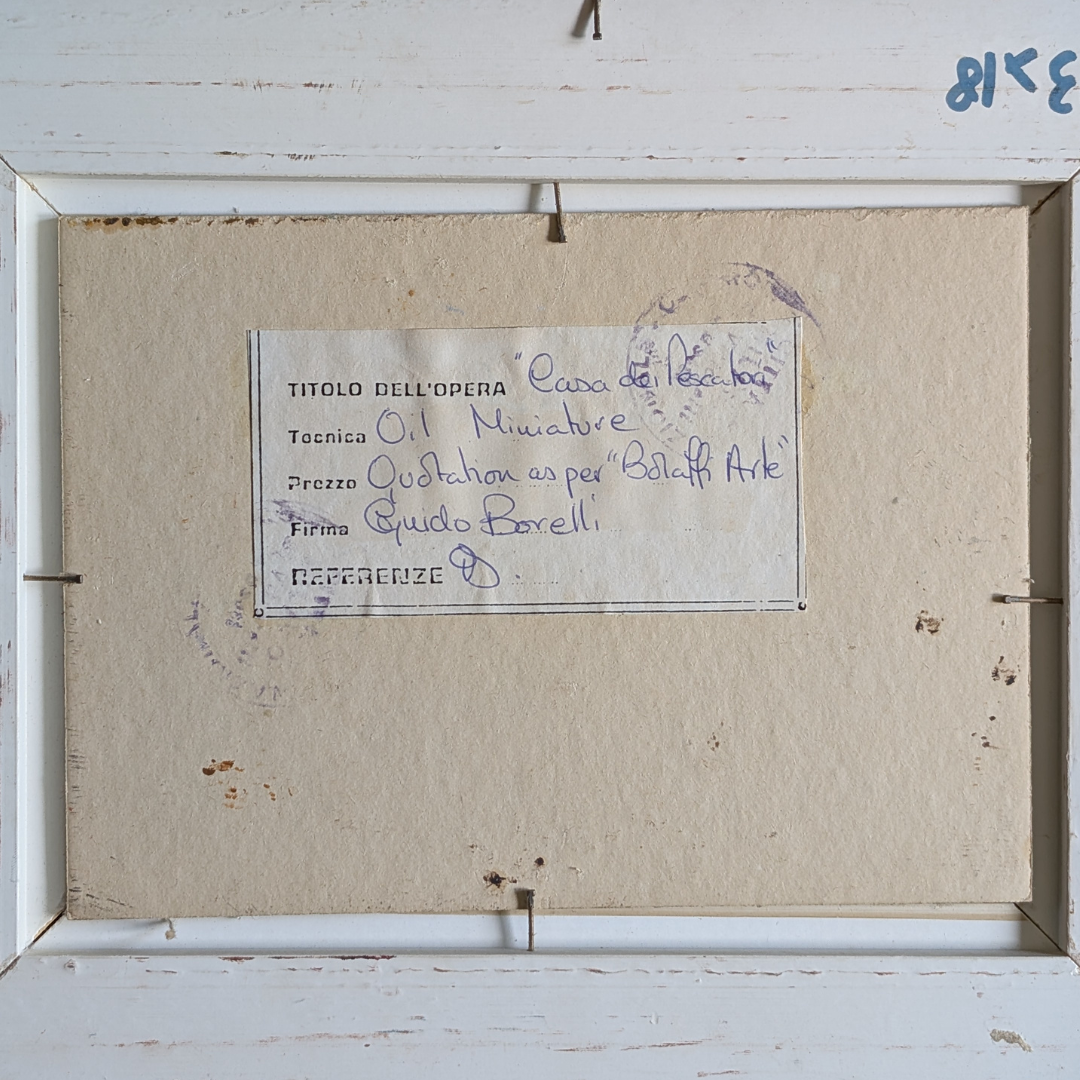 TITOLO DELL'OPERA "Casa dei Pescatori"
Tecnica Oil Miniature
Prezzo Quotation as per "Bolaffi Arte"
Firma Guido Borelli
REFERENZE